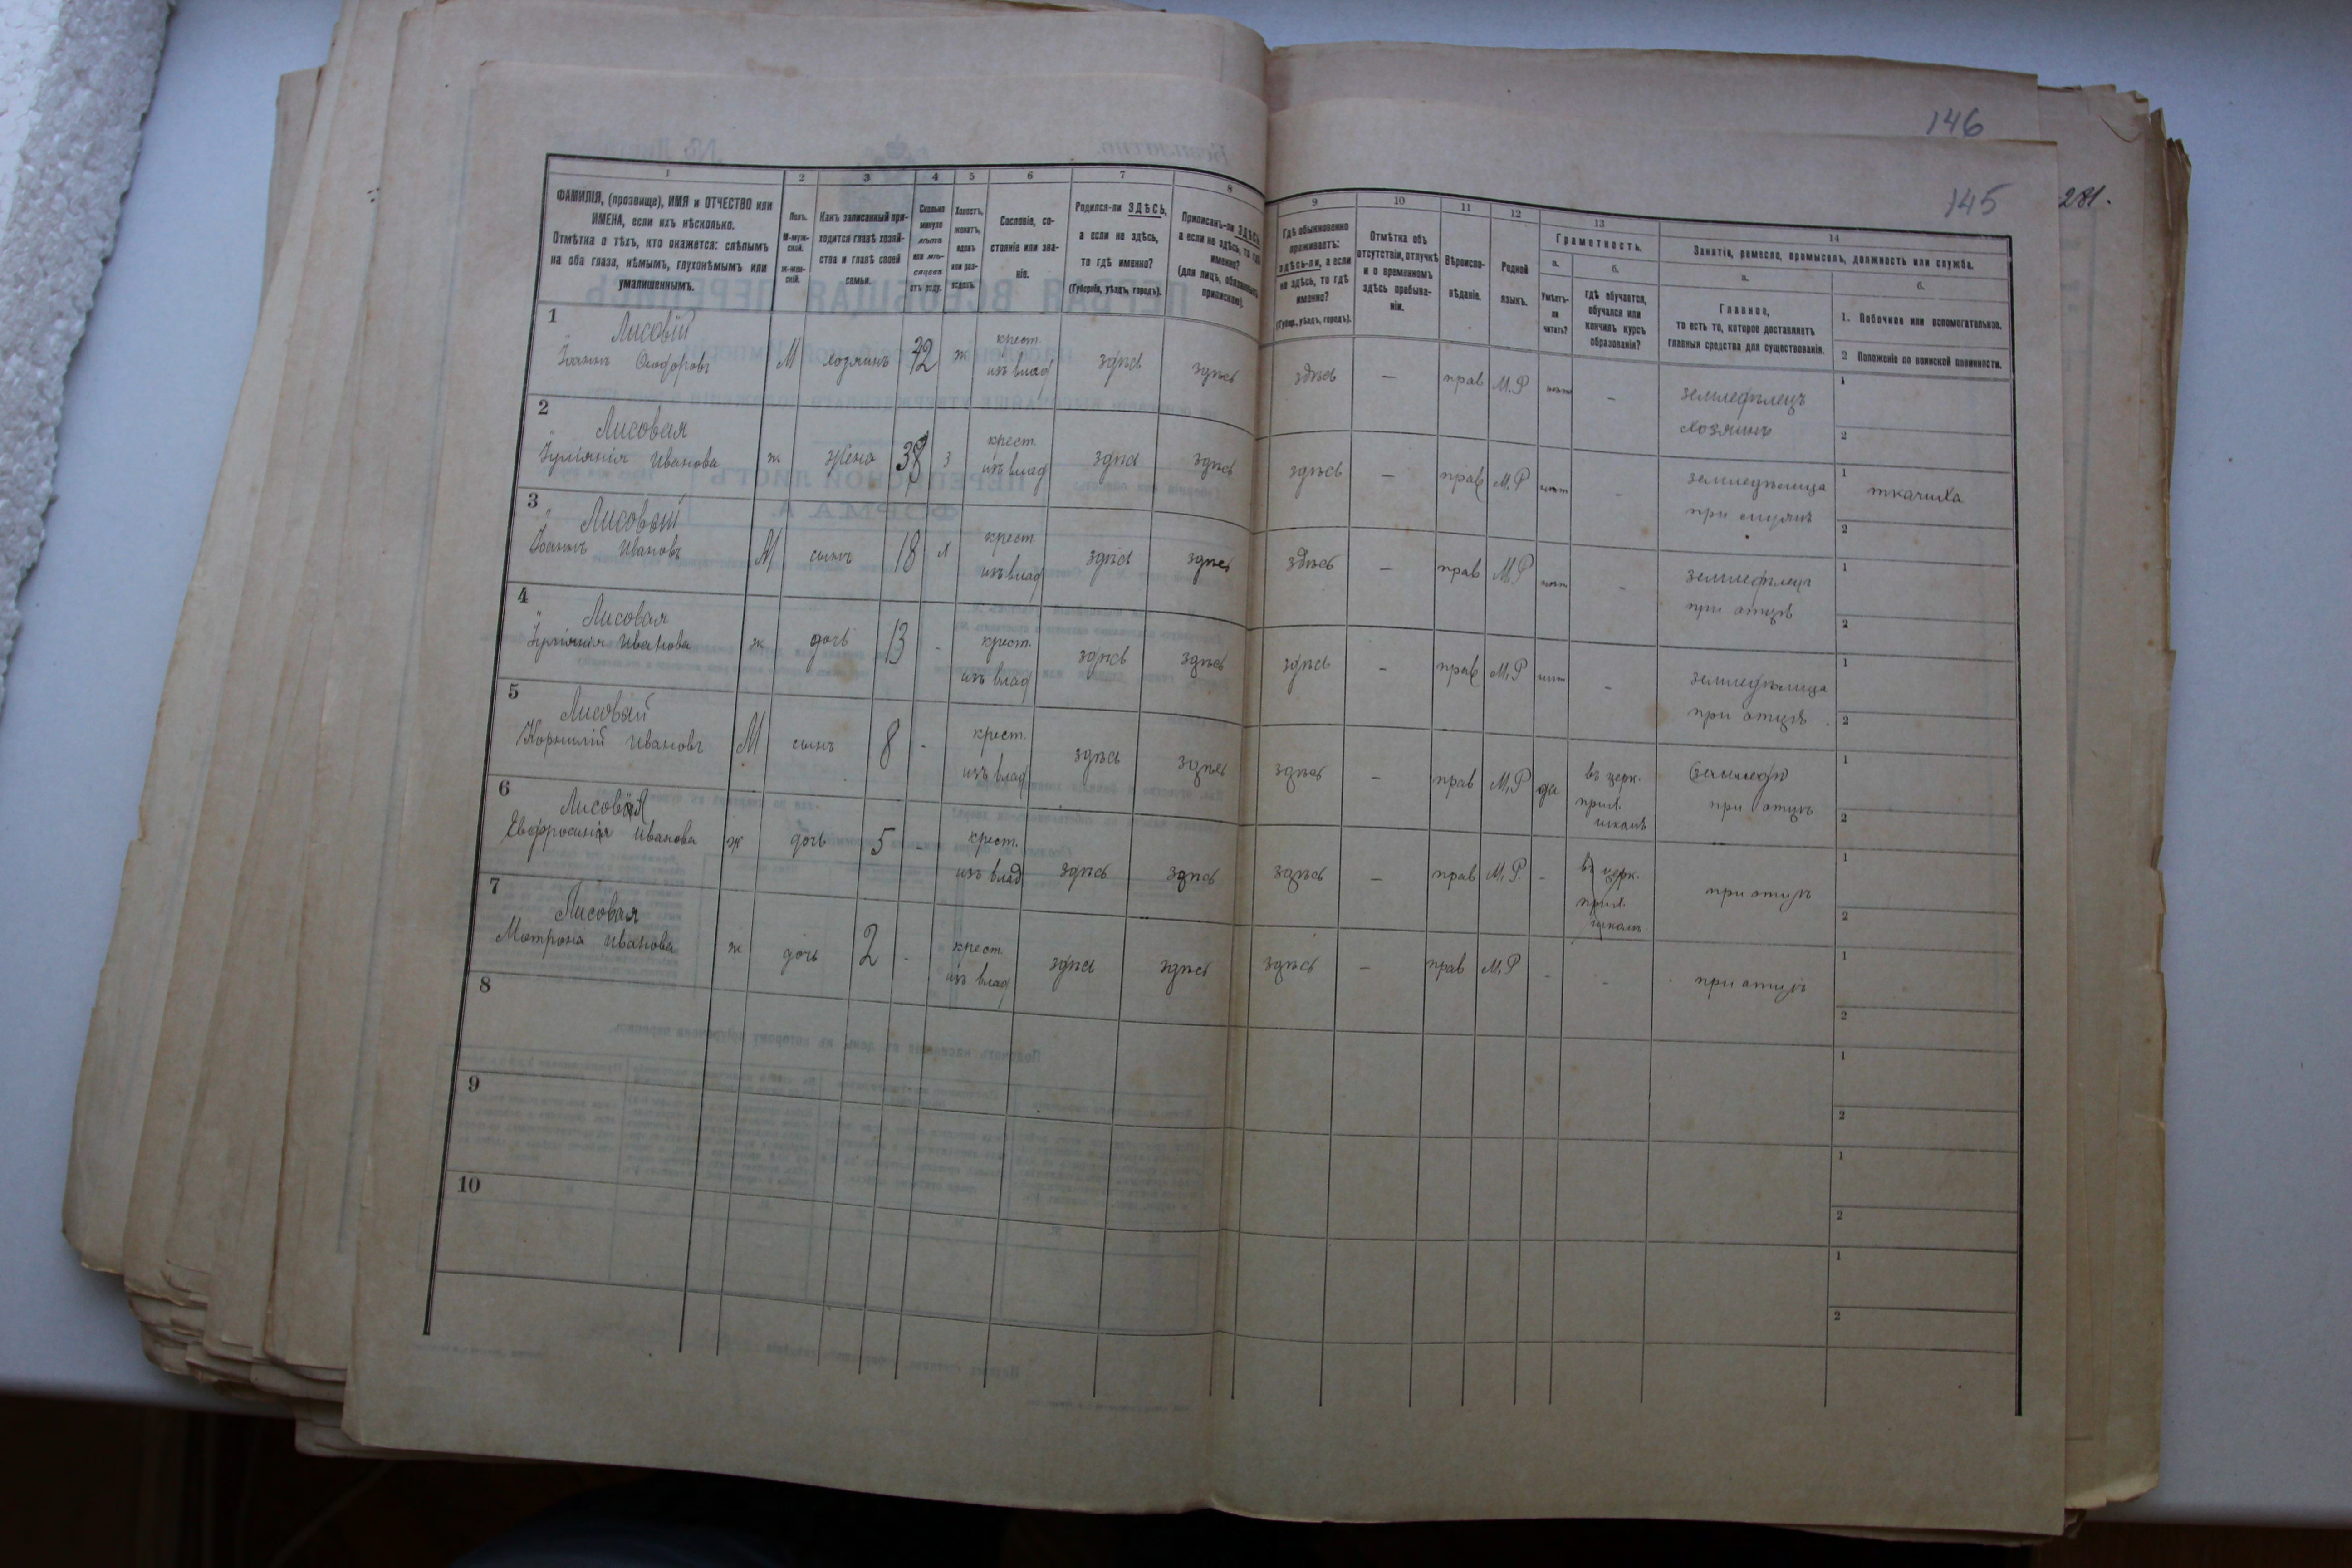 146
145
281.
1
2
3
4
5
6
7
8
9
10
11
12
13
14
ФАМИЛІЯ, (прозвище), ИМЯ и ОТЧЕСТВО или
ИМЕНА, если ихъ нѣсколько.
Отмѣтка о тѣхъ, кто окажется: слѣпымъ
на оба глаза, нѣмымъ, глухонѣмымъ или
умалишеннымъ.
Полъ.
М-муж-
ской.
ж-жен-
скій.
Какъ записанный при-
ходится главѣ хозяй-
ства и главѣ своей
семьи.
Сколько
минуло
лѣтъ
или мѣ-
сяцевъ
отъ роду.
Холостъ,
женатъ,
вдовъ
или раз-
веденъ.
Сословіе, со-
стояніе или зва-
ніе.
Родился-ли ЗДѢСЬ,
а если не здѣсь,
то гдѣ именно?
(Губернія, уѣздъ, городъ).
Приписанъ-ли ЗДѢСЬ,
а если не здѣсь, то гдѣ
именно?
(для лицъ, обязанныхъ
припискою).
Гдѣ обыкновенно
проживаетъ:
здѣсь-ли, а если
не здѣсь, то гдѣ
именно?
(Губер., уѣздъ, городъ).
Отмѣтка объ
отсутствіи, отлучкѣ
и о временномъ
здѣсь пребыва-
ніи.
Вѣроиспо-
вѣданіе.
Родной
языкъ.
Грамотность.
а.
Умѣетъ-
ли
читать?
б.
гдѣ обучается,
обучался или
кончилъ курсъ
образованія?
Занятіе, ремесло, промыселъ, должность или служба.
а.
Главное,
то есть то, которое доставляетъ
главныя средства для существованія.
б.
1. Побочное или вспомогательное.
2 Положеніе по воинской повинности.
1
Лисовій
Іоаннъ М хозяинъ 42 ж крест. изъ влад здѣсь здѣсь здѣсь — прав М.Р нѣтъ - земледѣлецъ хозяинъ
1
2
2
Лисовая
Иванова ж жена 3 крест. изъ влад здѣсь здѣсь здѣсь — прав М.Р нѣтъ - земледѣлица при мужѣ
1 ткачиха
2
3
Лисовый
Іоаннъ Ивановъ М сынъ 18 х крест. изъ влад здѣсь здѣсь здѣсь — прав М.Р нѣтъ - земледѣлецъ при отцѣ
1
2
4
Лисовая
Иванова ж дочь 13 - крест. изъ влад здѣсь здѣсь здѣсь — прав М.Р нѣтъ - земледѣлица при отцѣ
1
2
5
Лисовый
Корнилій Ивановъ М сынъ 8 - крест. изъ влад здѣсь здѣсь здѣсь — прав М.Р да въ церк. прих. школѣ при отцѣ
1
2
6
Лисовая
Евфросинія Иванова ж дочь 5 - крест. изъ влад здѣсь здѣсь здѣсь — прав М.Р. - въ церк. прих. школѣ при отцѣ
1
2
7
Лисовая
Мотрона Иванова ж дочь 2 - крест. изъ влад здѣсь здѣсь здѣсь — прав М.Р - - при отцѣ
1
2
8
1
2
9
1
2
10
1
2